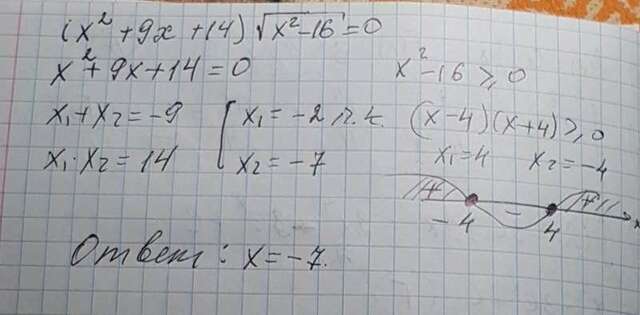 (x² + 9x + 14) √(x² - 16) = 0
x² + 9x + 14 = 0
x² - 16 ⩾ 0
x₁ + x₂ = -9
[ x₁ = -2 п.к.
(x - 4)(x + 4) ⩾ 0
x₁ · x₂ = 14
x₂ = -7
x₁ = 4 x₂ = -4
+ - +
-4 4 x
Ответ: x = -7.